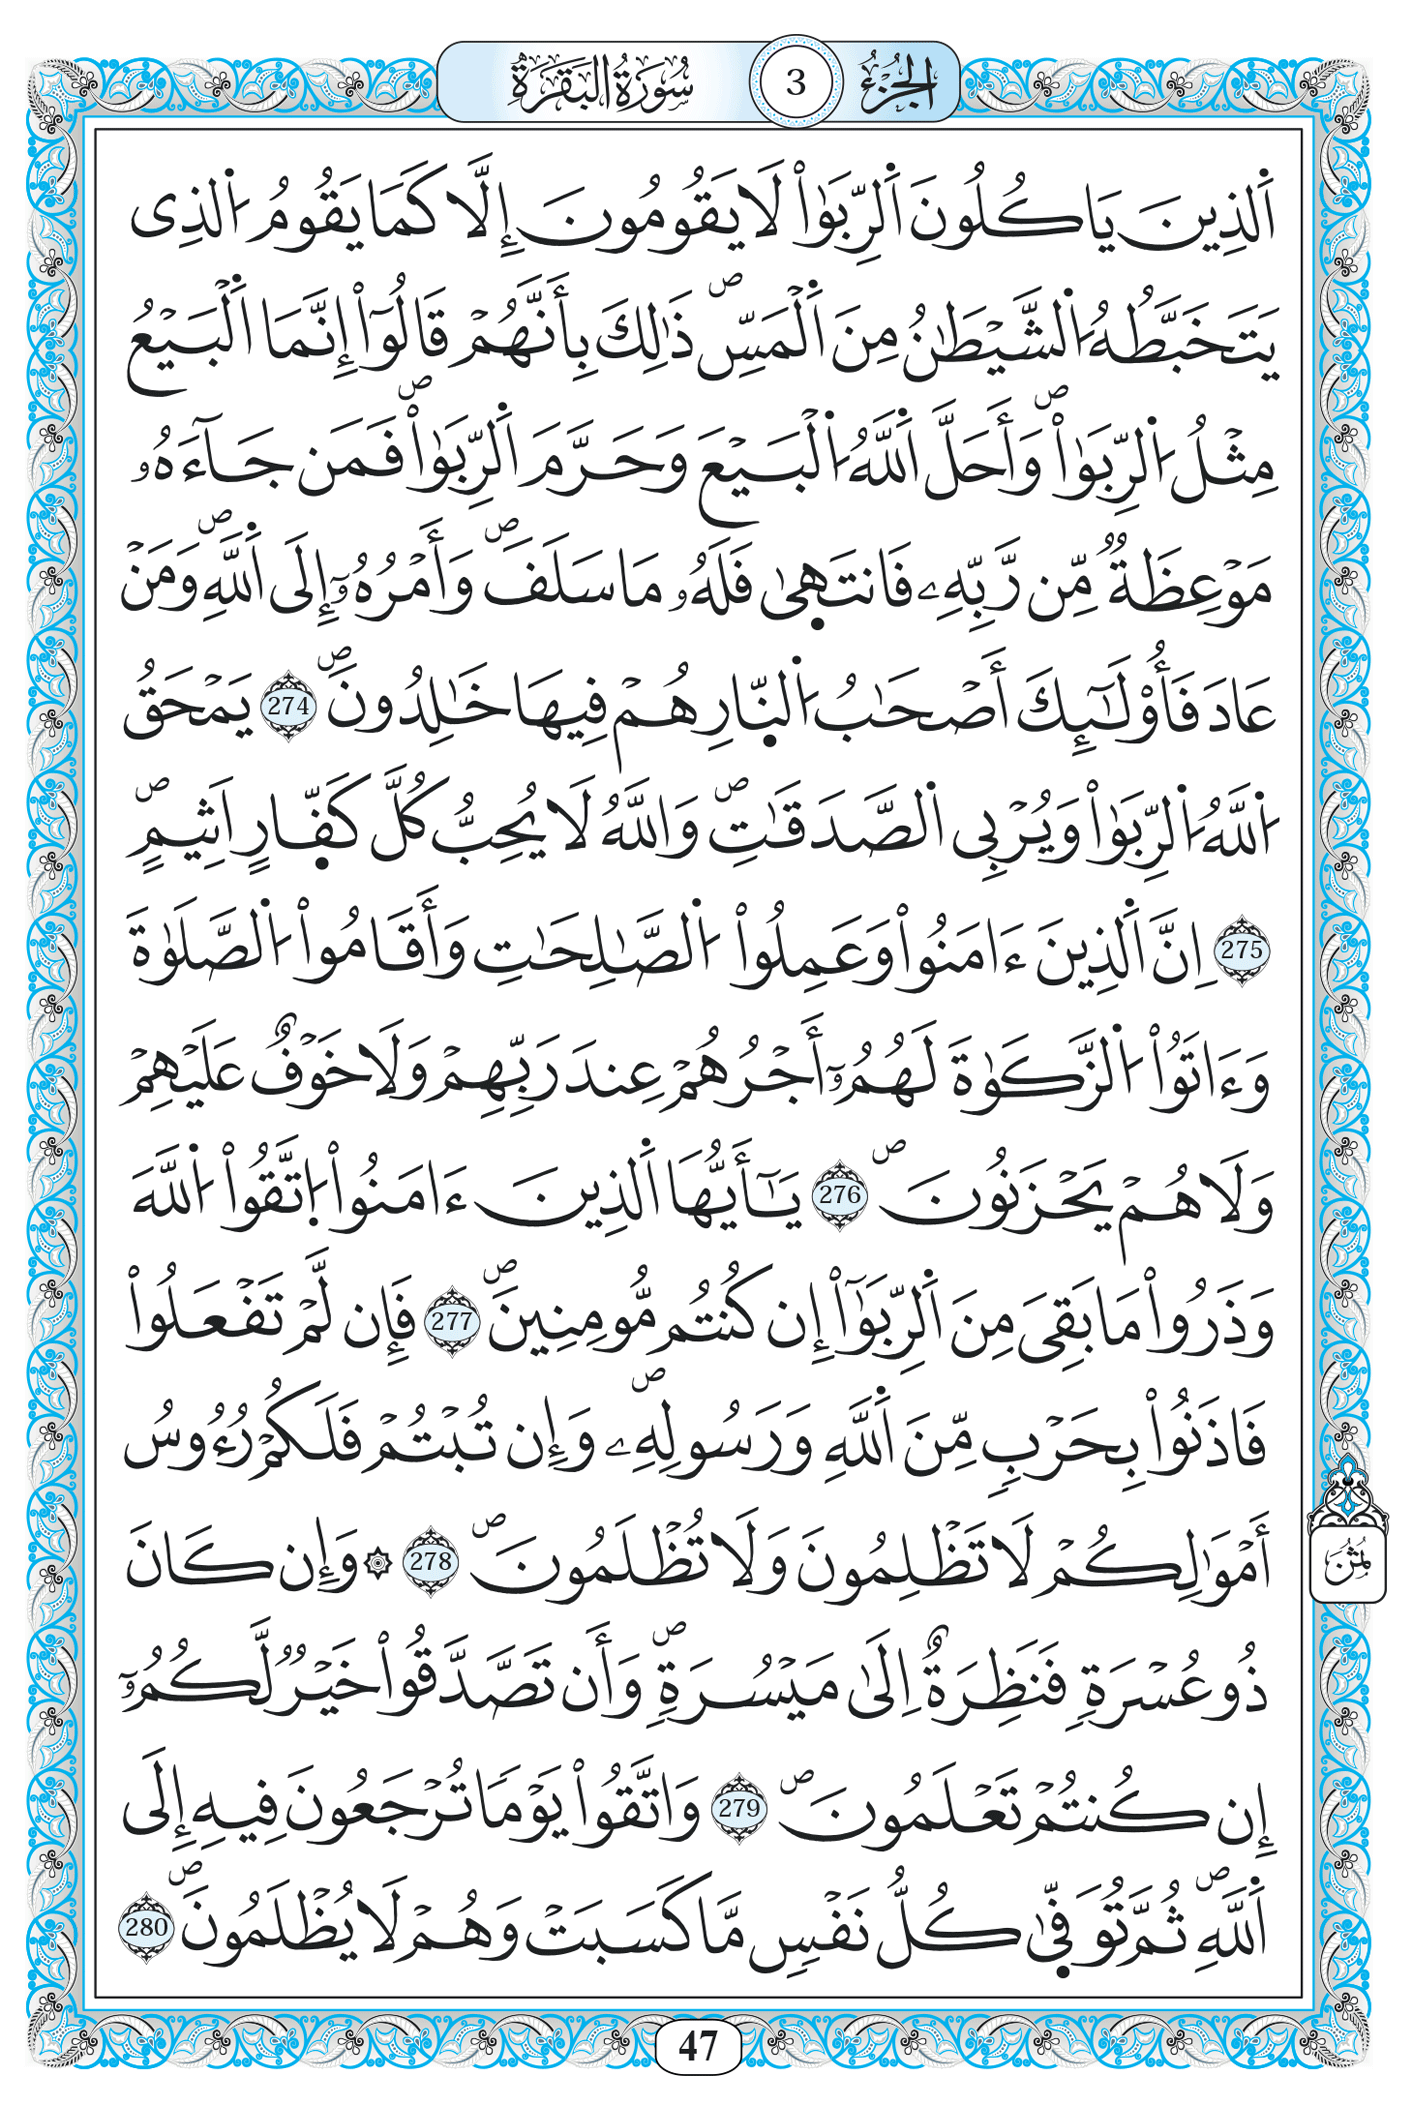 الجزء 3 سورة البقرة
اَ۬لذِينَ يَاكُلُونَ اَ۬لرِّبَوٰاْ لَا يَقُومُونَ إِلَّا كَمَا يَقُومُ اُ۬لذِى
يَتَخَبَّطُهُ اُ۬لشَّيْطَٰنُ مِنَ اَ۬لْمَسِّۖ ذَٰلِكَ بِأَنَّهُمْ قَالُوٓاْ إِنَّمَا اَ۬لْبَيْعُ
مِثْلُ اُ۬لرِّبَوٰاْۖ وَأَحَلَّ اَ۬للَّهُ اُ۬لْبَيْعَ وَحَرَّمَ اَ۬لرِّبَوٰاْۖ فَمَن جَآءَهُۥ
مَوْعِظَةٌ مِّن رَّبِّهِۦ فَانتَهِىٰ فَلَهُۥ مَا سَلَفَۖ وَأَمْرُهُۥٓ إِلَى اَ۬للَّهِۖ وَمَنْ
عَادَ فَأُوْلَٰٓئِكَ أَصْحَٰبُ اُ۬لنّ۪ارِ هُمْ فِيهَا خَٰلِدُونَۖ 274 يَمْحَقُ
اُ۬للَّهُ اُ۬لرِّبَوٰاْ وَيُرْبِى اِ۬لصَّدَقَٰتِۖ وَاللَّهُ لَا يُحِبُّ كُلَّ كَفّ۪ارٍ اَثِيمٍۖ
275 اِنَّ اَ۬لذِينَ ءَامَنُواْ وَعَمِلُواْ اُ۬لصَّٰلِحَٰتِ وَأَقَامُواْ اُ۬لصَّلَوٰةَ
وَءَاتَوُاْ اُ۬لزَّكَوٰةَ لَهُمُۥٓ أَجْرُهُمْ عِندَ رَبِّهِمْ وَلَا خَوْفٌ عَلَيْهِمْ
وَلَا هُمْ يَحْزَنُونَۖ 276 يَٰٓأَيُّهَا اَ۬لذِينَ ءَامَنُواْ اُ۪تَّقُواْ اُ۬للَّهَ
وَذَرُواْ مَا بَقِىَ مِنَ اَ۬لرِّبَوٰٓاْ إِن كُنتُم مُّومِنِينَۖ 277 فَإِن لَّمْ تَفْعَلُواْ
فَاذَنُواْ بِحَرْبٍ مِّنَ اَ۬للَّهِ وَرَسُولِهِۦۖ وَإِن تُبْتُمْ فَلَكُمْ رُءُوسُ
أَمْوَٰلِكُمْ لَا تَظْلِمُونَ وَلَا تُظْلَمُونَۖ 278 ۞ وَإِن كَانَ
ذُو عُسْرَةٍ فَنَظِرَةٌ اِلَىٰ مَيْسُرَةٍۖ وَأَن تَصَّدَّقُواْ خَيْرٌ لَّكُمُۥٓ
إِن كُنتُمْ تَعْلَمُونَۖ 279 وَاتَّقُواْ يَوْمًا تُرْجَعُونَ فِيهِ إِلَى
اَ۬للَّهِۖ ثُمَّ تُوَفّ۪ىٰ كُلُّ نَفْسٍ مَّا كَسَبَتْ وَهُمْ لَا يُظْلَمُونَۖ 280
ثُمُن
47